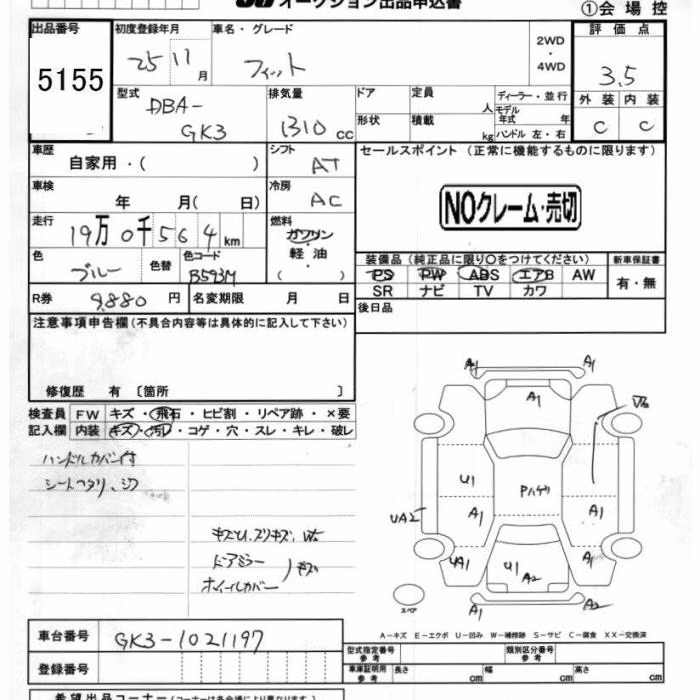 オークション出品申込書
①会場控
出品番号 初度登録年月 車名・グレード 2WD・4WD 評価点
5155 25 11月 フィット 3.5
型式 排気量 ドア 定員 人 ディーラー・並行 外装 内装
DBA-GK3 1310cc 形状 積載 kg モデル年式 年 ハンドル 左・右 C C
車歴 シフト セールスポイント (正常に機能するものに限ります)
自家用・( ) AT
NOクレーム・売切
車検 年 月( 日) 冷房 AC
走行 19万0千564km 燃料 ガソリン・軽油・( )
色 ブルー 色替 色コード B593M
装備品(純正品に限り〇をつけてください) 新車保証書
PS PW ABS エアB AW 有・無
SR ナビ TV カワ
R券 9,880円 名変期限 月 日
後日品
注意事項申告欄(不具合内容等は具体的に記入して下さい)
修復歴 有 〔箇所 〕
検査員記入欄 FW キズ・飛石・ヒビ割・リペア跡・×要
内装 キズ・汚レ・コゲ・穴・スレ・キレ・破レ
ハンドルカバー付
シートヘタリ、シワ
キズU、スリキズ、
ドアミラー
ホイールカバー
キズ
A1 A1
A1
U1
A1
Pハゲリ
A1
UA2
UA1
U1
A2
A1
A1 A1
スペア
A-キズ E-エクボ U-凹み W-補修跡 S-サビ C-腐食 XX-交換済
車台番号 GK3-1021197
型式指定番号 参考 類別区分番号 参考
登録番号
車庫証明用 参考 長さ cm 幅 cm 高さ cm
希望出品コーナー(コーナーは各会場により異なります)